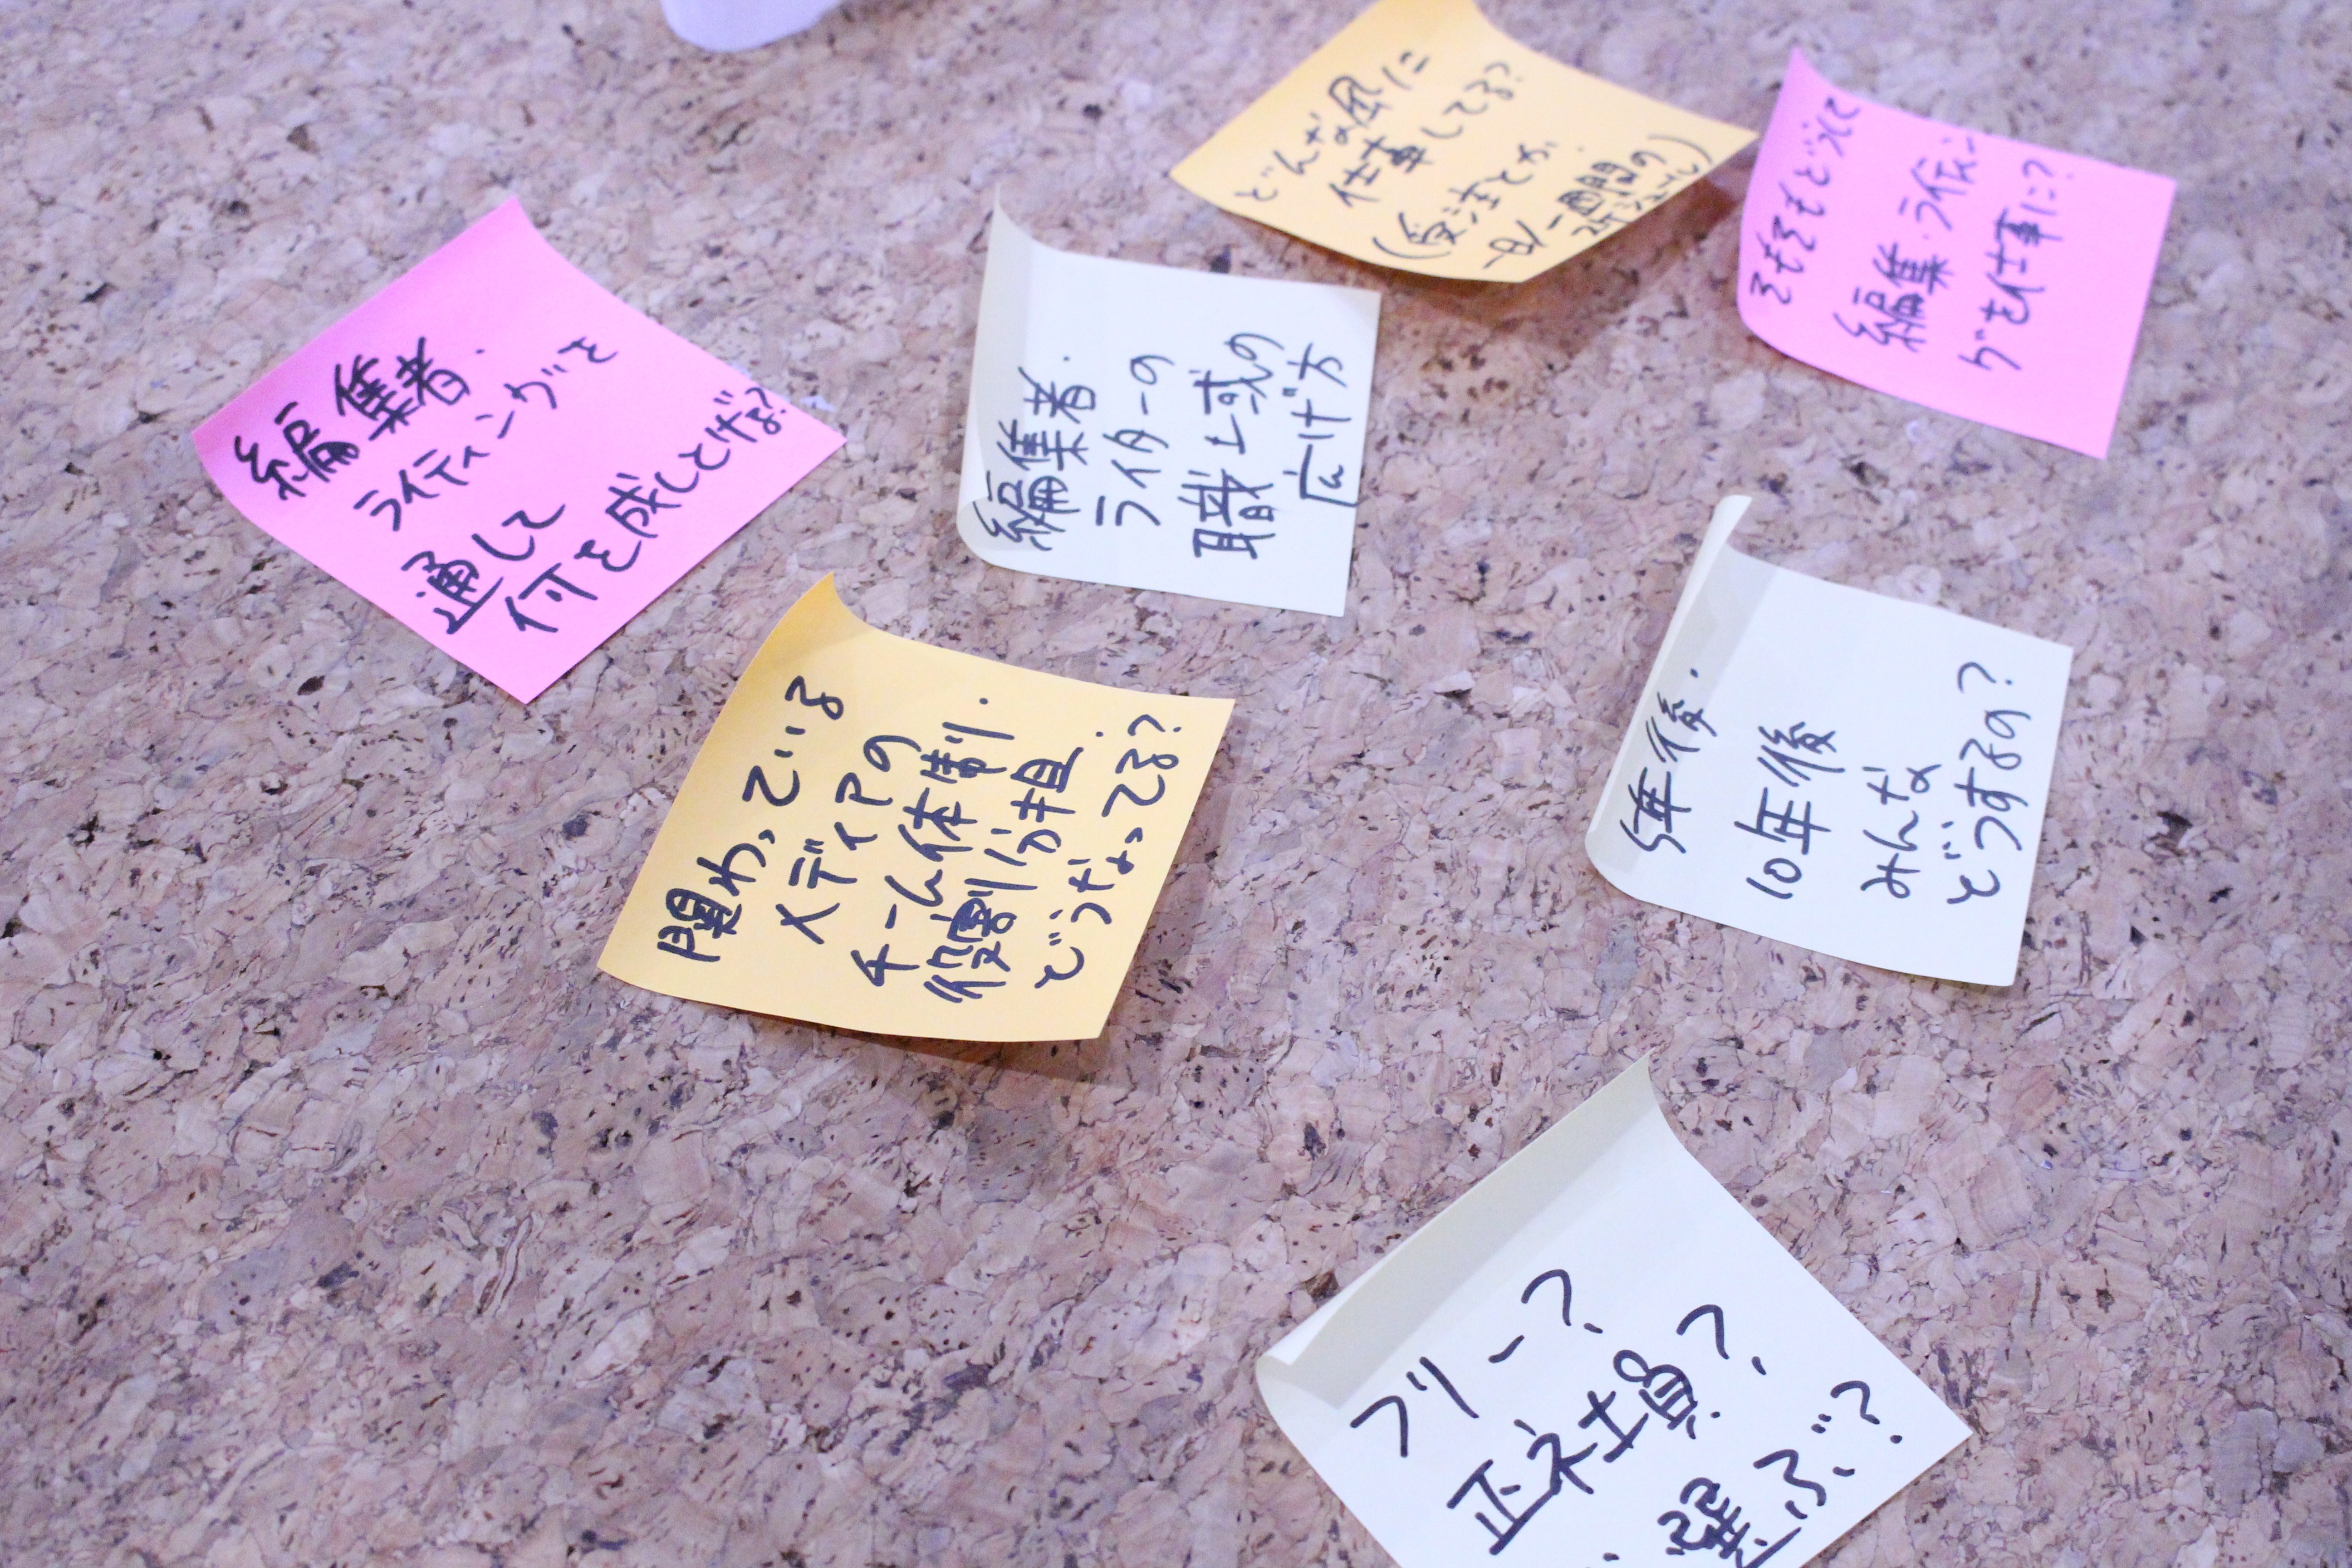 どんな風に
仕事してる?
(受注とか
一日/一週間の
スケジュール)
そもそもどうして
編集・ライティン
グを仕事に?
編集者・
ライティングを
通して
何を成しとげる?
編集者・
ライターの
職域の
広げ方
関わっている
メディアの
チーム体制・
役割分担
どうなってる?
5年後・
10年後
みんな
どうするの?
フリー?
正社員?
選ぶ?